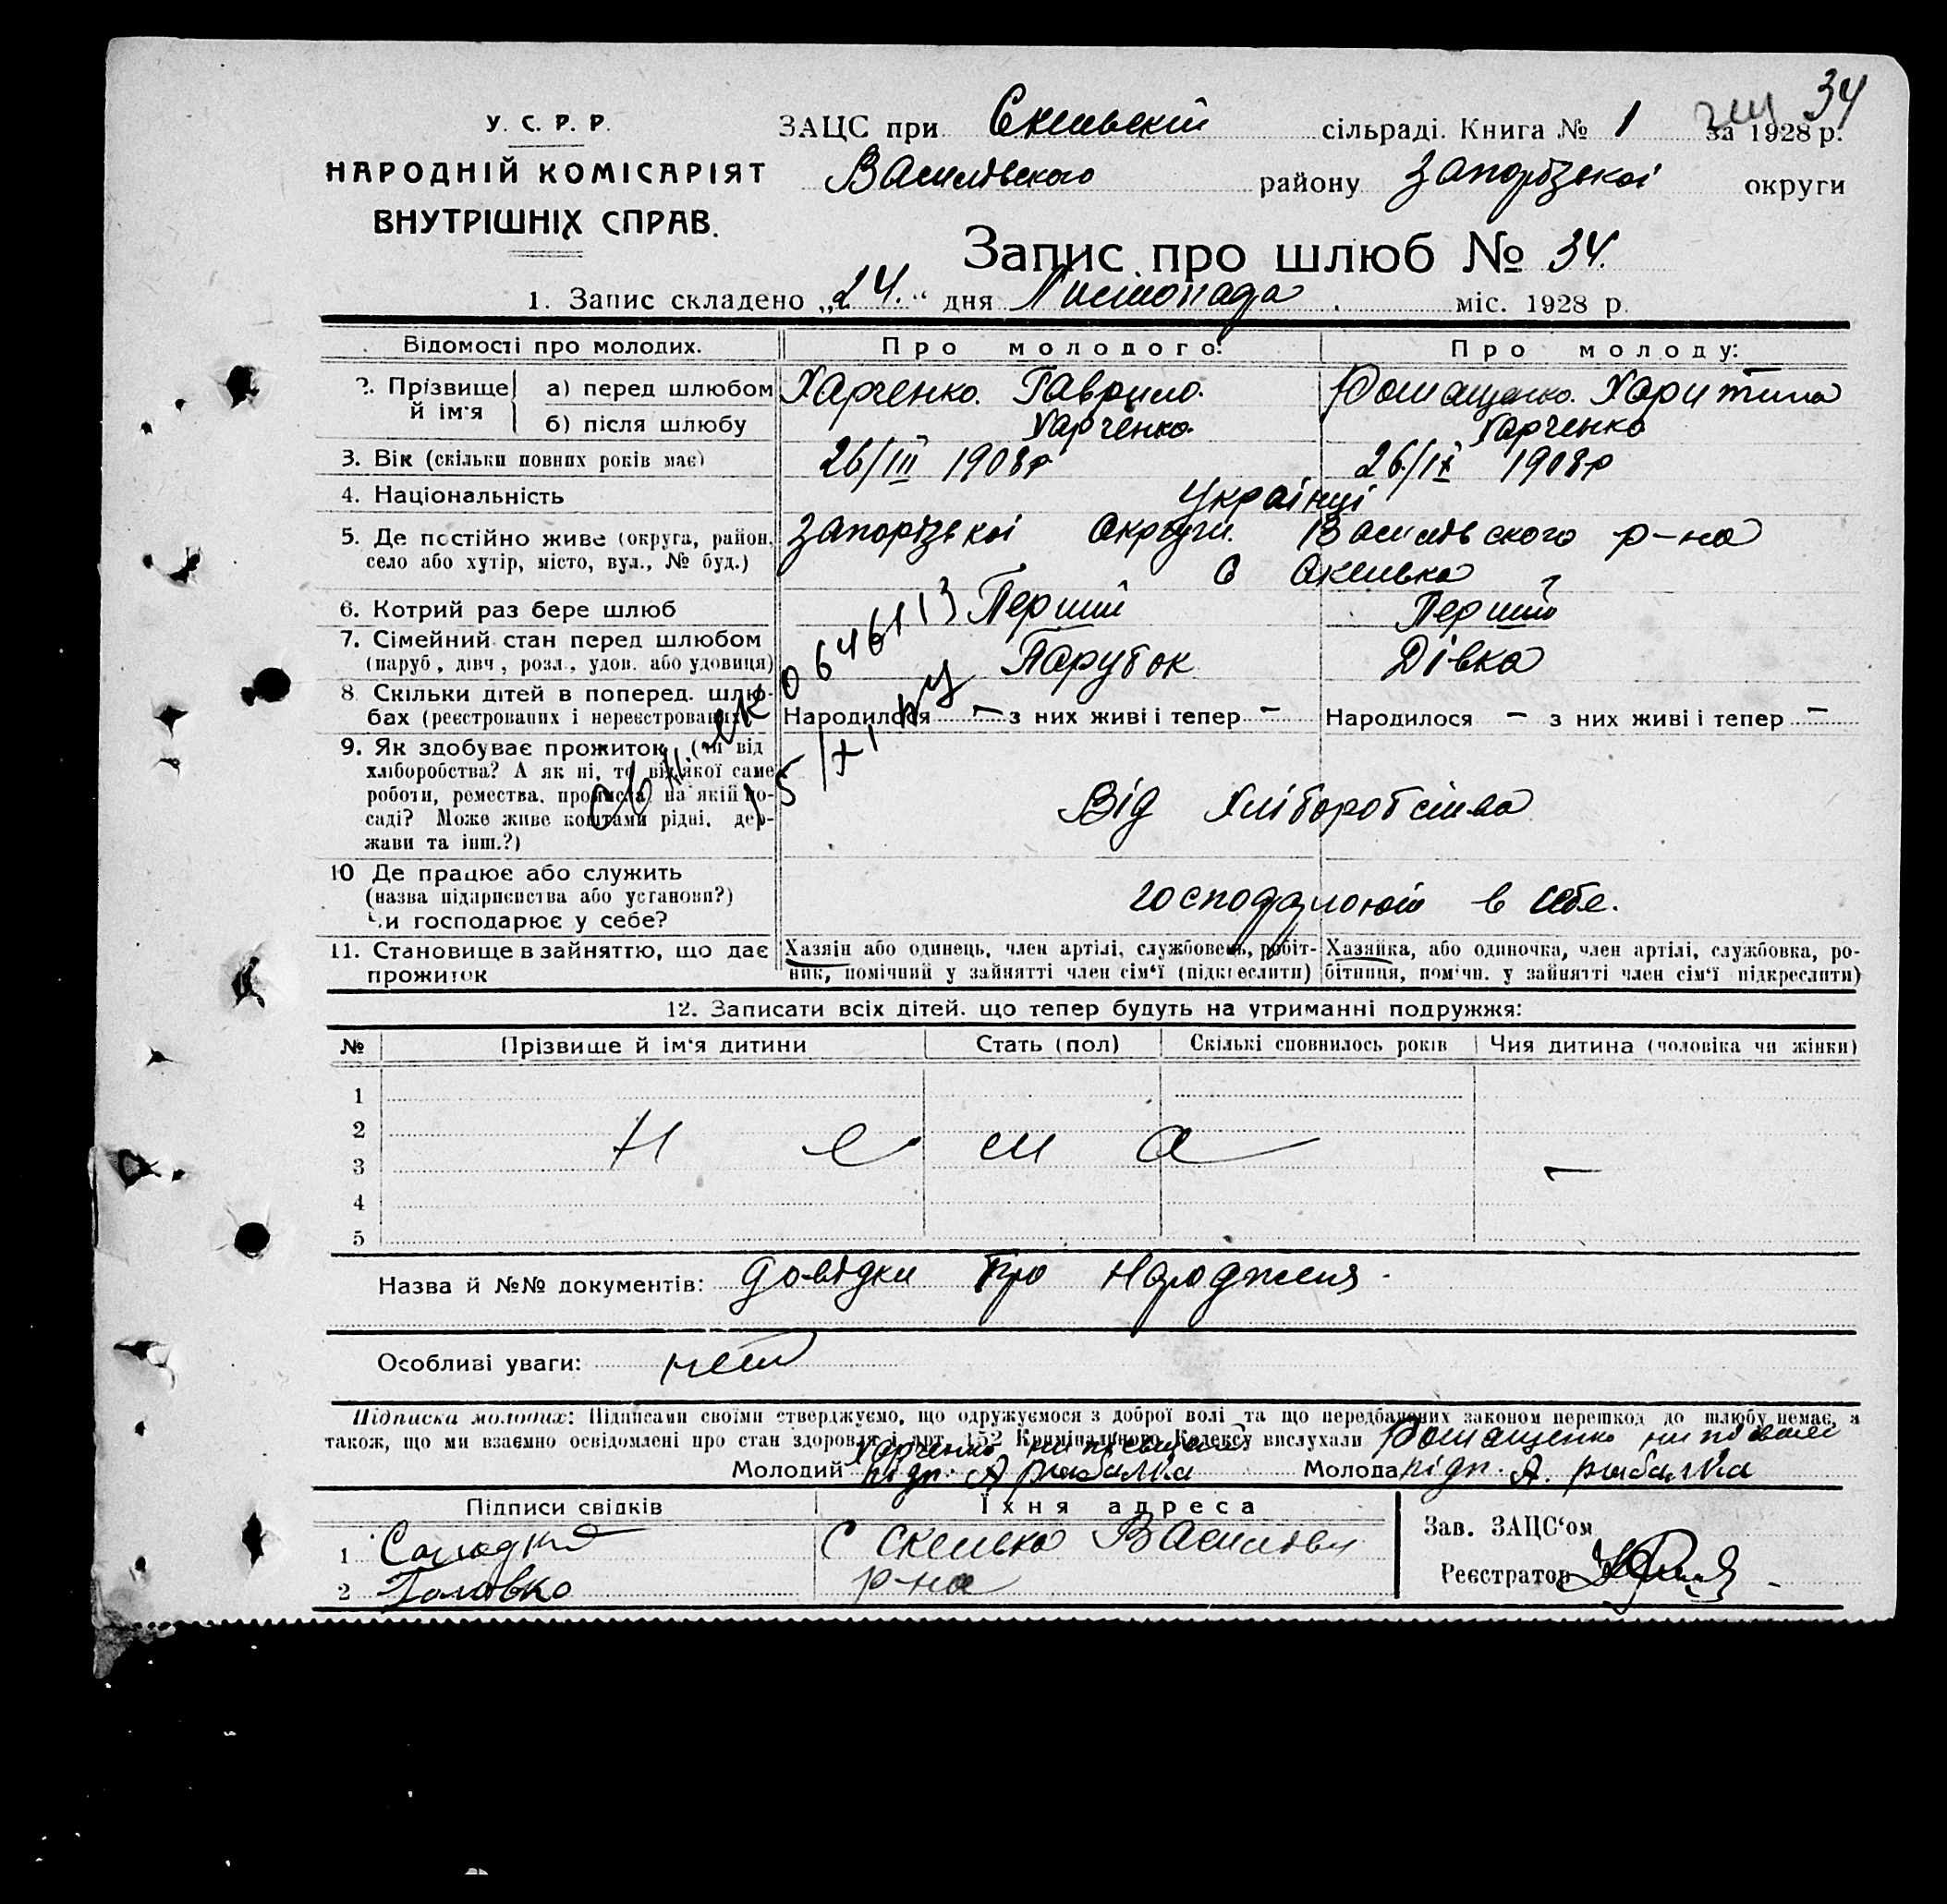 34
У. С. Р. Р.
НАРОДНІЙ КОМІСАРІЯТ
ВНУТРІШНІХ СПРАВ.
ЗАЦС при Скельскій сільраді. Книга № 1 за 1928 р.
Василівского району Запорізькоі округи
Запис про шлюб № 34.
1. Запис складено „24.“ дня Листопада міс. 1928 р.
Відомості про молодих. Про молодого: Про молоду:
2. Прізвище й ім'я а) перед шлюбом Харченко. Гаврило. Ромащенко. Харитина
б) після шлюбу Харченко. Харченко
3. Вік (скільки повних років має) 26/III 1908р 26/IX 1908р
4. Національність Украінці
5. Де постійно живе (округа, район, Запорізькоі Округи. Василівского р-на
село або хутір, місто, вул., № буд.) С Скелька
6. Котрий раз бере шлюб Перший Перший
7. Сімейний стан перед шлюбом Парубок Дівка
(паруб., дівч., розл., удов. або удовиця)
8. Скільки дітей в поперед. шлю-
бах (реєстрованих і нереєстрованих) Народилося — з них живі і тепер — Народилося — з них живі і тепер —
0646113
9. Як здобуває прожиток (чи від
хліборобства? А як ні, то від якої саме
роботи, ремества, промисла, на якій по- Від Хліборобства
саді? Може живе коштами рідні, дер-
жави та інш.?)
10 Де працює або служить
(назва підприємства або установи?) господарюють в себе.
Чи господарює у себе?
11. Становище в зайняттю, що дає Хазяїн або одинець, член артілі, службовець, робіт- Хазяйка, або одиночка, член артілі, службовка, ро-
прожиток ник, помічний у зайнятті член сім'ї (підкреслити) бітниця, помічн. у зайнятті член сім'ї підкреслити)
12. Записати всіх дітей, що тепер будуть на утриманні подружжя:
№ Прізвище й ім'я дитини Стать (пол) Скількі сповнилось років Чия дитина (чоловіка чи жінки)
1
2 Н е м а
3 —
4
5
Назва й №№ документів: Довідки Про Народженя.
Особливі уваги: нет
Підписка молодих: Підписами своїми стверджуємо, що одружуємося з доброї волі та що передбачених законом перешкод до шлюбу немає, а
також, що ми взаємно освідомлені про стан здоровля і арт. 152 Кримінального Кодексу вислухали Ромащенко
Харченко
Молодий підп. А рыбалка Молода підп. А. рыбалка
Підписи свідків Їхня адреса
1 С Скелька Василівск
2 Головко р-на
Зав. ЗАЦС'ом
Реєстратор